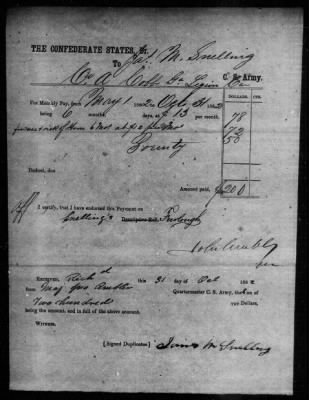 THE CONFEDERATE STATES, Dr.
To Jas. M. Snelling
Co A Cobb Ga Legion Cav C. S. Army.
DOLLARS. CTS.
For Monthly Pay, from May 1 1862 to Oct 31 1862
being 6 months, days @ 13 per month, 78
for use & risk of Horse 6 Mos at per Mo 72
Bounty 50
Deduct, due
Amount paid, $200
I certify, that I have endorsed this Payment on
Snelling's Descriptive Roll. Furlough
RECEIVED, Rich d this 31 day of Oct 186
from Maj Jno Ambler Quartermaster C. S. Army, the sum of
Two hundred two Dollars,
being the amount, and in full of the above account.
WITNESS,
[Signed Duplicates.] James M Snelling